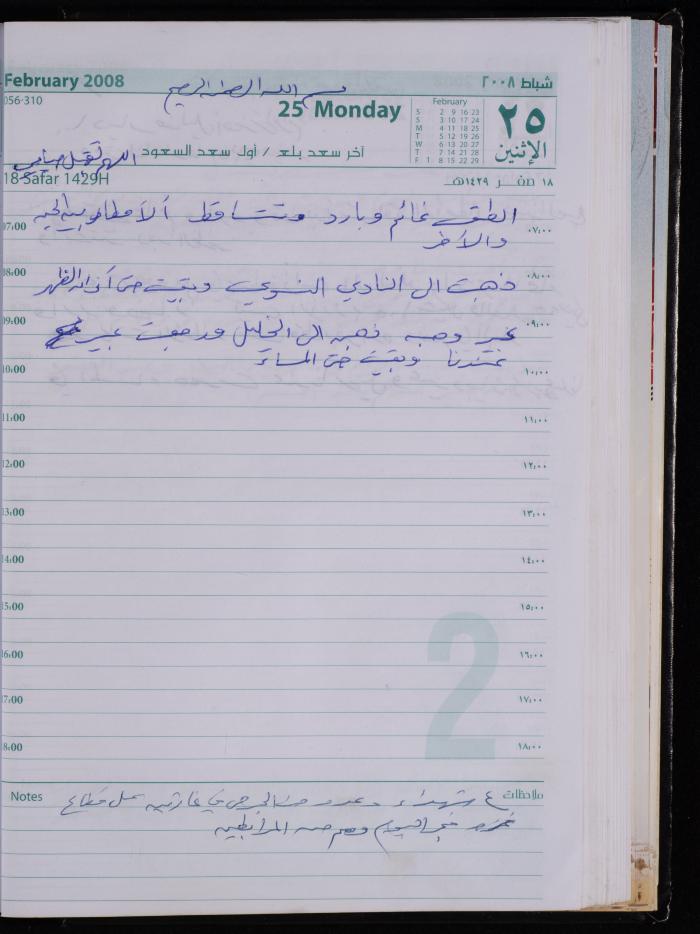 February 2008
شباط ٢٠٠٨
بسم الله الرحمن الرحيم
056-310
25 Monday
February
S 2 9 16 23
S 3 10 17 24
M 4 11 18 25
T 5 12 19 26
W 6 13 20 27
T 7 14 21 28
F 1 8 15 22 29
٢٥
الإثنين
آخر سعد بلع / أول سعد السعود
اللهم تقبل صيامي
18 Safar 1429H
١٨ صفر ١٤٢٩هـ
الطقس غائم وبارد وتتساقط الأمطار بين الحين
07:00 ٠٧:٠٠
والآخر
08:00 ٠٨:٠٠
ذهبت الى النادي النسوي وبقيت حتى أذان الظهر
09:00 ٠٩:٠٠
ذهب الى الخليل ورجعت عبير
10:00 ١٠:٠٠
عندنا وبقيت حتى المساء
11:00 ١١:٠٠
12:00 ١٢:٠٠
13:00 ١٣:٠٠
14:00 ١٤:٠٠
15:00 ١٥:٠٠
16:00 ١٦:٠٠
17:00 ١٧:٠٠
18:00 ١٨:٠٠
2
Notes
ملاحظات
٤ شهداء وعدد من الجرحى في غارتين على قطاع
غزة فجر اليوم وهم من المرابطين